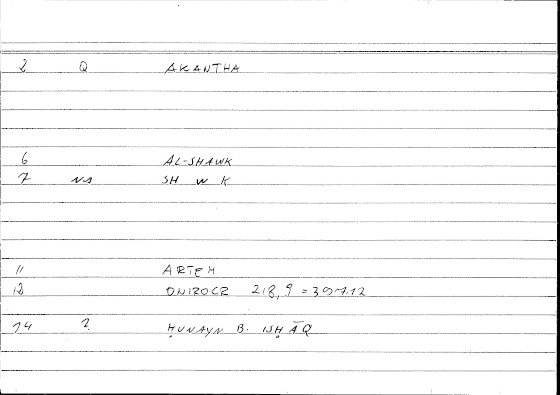 2 Q AKANTHA
6 AL-SHAWK
7 NA SH W K
11 ARTEM
12 ONIROCR 218,9 = 397.12
14 2 ḤUNAYN B. ISḤĀQ